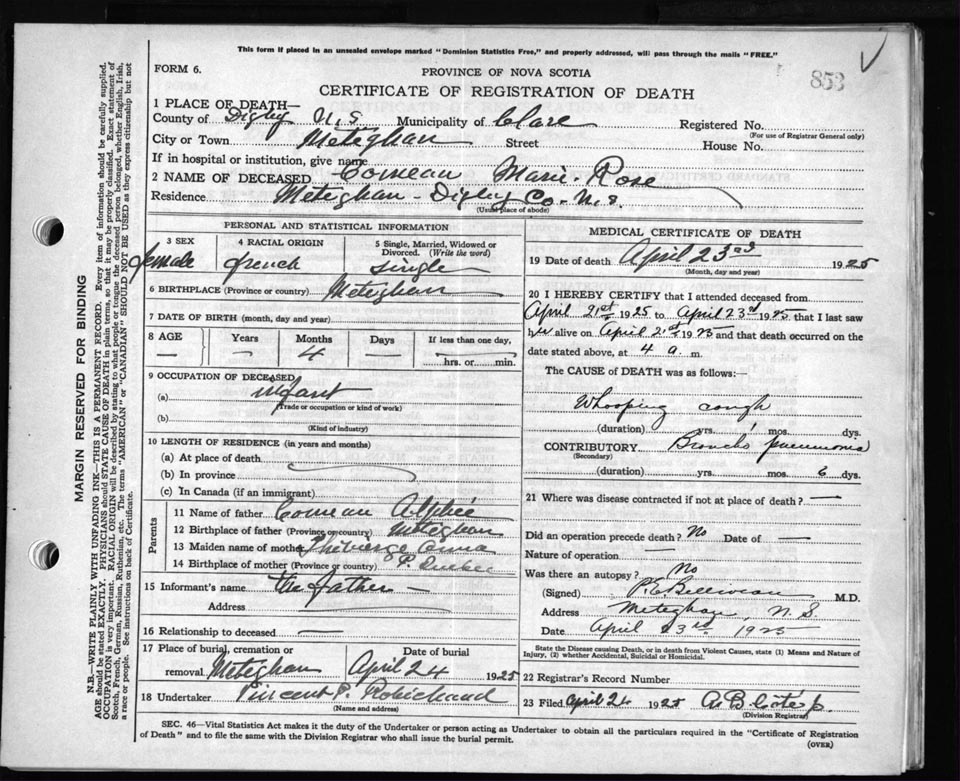 This form if placed in an unsealed envelope marked "Dominion Statistics Free," and properly addressed, will pass through the mails "FREE."
853
FORM 6.
PROVINCE OF NOVA SCOTIA
CERTIFICATE OF REGISTRATION OF DEATH
1 PLACE OF DEATH—
County of Digby N.S Municipality of Clare Registered No.
(For use of Registrar General only)
City or Town Meteghan Street House No.
If in hospital or institution, give name
2 NAME OF DECEASED Comeau Marie-Rose
Residence Meteghan - Digby Co - N.S.
(Usual place of abode)
PERSONAL AND STATISTICAL INFORMATION
3 SEX 4 RACIAL ORIGIN 5 Single, Married, Widowed or Divorced. (Write the word)
female french single
6 BIRTHPLACE (Province or country) Meteghan
7 DATE OF BIRTH (month, day and year)
8 AGE Years Months Days If less than one day,
— — 4 — hrs. or min.
9 OCCUPATION OF DECEASED
(a) infant
(Trade or occupation or kind of work)
(b)
(Kind of industry)
10 LENGTH OF RESIDENCE (in years and months)
(a) At place of death
(b) In province
(c) In Canada (if an immigrant)
Parents
11 Name of father Comeau Alphée
12 Birthplace of father (Province or country) Meteghan
13 Maiden name of mother Anna
14 Birthplace of mother (Province or country) P. Quebec
15 Informant's name the father —
Address
16 Relationship to deceased —
17 Place of burial, cremation or removal. Date of burial
Meteghan April 24 1925
18 Undertaker Vincent P. Robichaud
(Name and address)
MEDICAL CERTIFICATE OF DEATH
19 Date of death April 23rd 1925
(Month, day and year)
20 I HEREBY CERTIFY that I attended deceased from
April 21st 1925 to April 23rd 1925 that I last saw
her alive on April 21st 1925 and that death occurred on the
date stated above, at 4 a. m.
The CAUSE of DEATH was as follows:—
Whooping cough
(duration) yrs. 1 mos. dys.
CONTRIBUTORY Broncho pneumonia
(Secondary)
(duration) yrs. mos. 6 dys.
21 Where was disease contracted if not at place of death? —
Did an operation precede death? No Date of —
Nature of operation —
Was there an autopsy? No
(Signed) P.E. Belliveau M.D.
Address Meteghan N.S.
Date April 23rd 1925
State the Disease causing Death, or in death from Violent Causes, state (1) Means and Nature of Injury, (2) whether Accidental, Suicidal or Homicidal.
22 Registrar's Record Number
23 Filed April 24 1925
(Division Registrar)
SEC. 46—Vital Statistics Act makes it the duty of the Undertaker or person acting as Undertaker to obtain all the particulars required in the "Certificate of Registration
of Death" and to file the same with the Division Registrar who shall issue the burial permit.
(OVER)
MARGIN RESERVED FOR BINDING
N.B.—WRITE PLAINLY WITH UNFADING INK—THIS IS A PERMANENT RECORD. Every item of information should be carefully supplied.
AGE should be stated EXACTLY. PHYSICIANS should STATE CAUSE OF DEATH in plain terms, so that it may be properly classified. Exact statement of
OCCUPATION is very important. RACIAL ORIGIN will be described by stating to what people or tongue the deceased person belonged, whether English, Irish,
Scotch, French, German, Russian, Ruthenian, etc. The terms "AMERICAN" or "CANADIAN" SHOULD NOT BE USED as they express citizenship but not
a race or people. See instructions on back of Certificate.